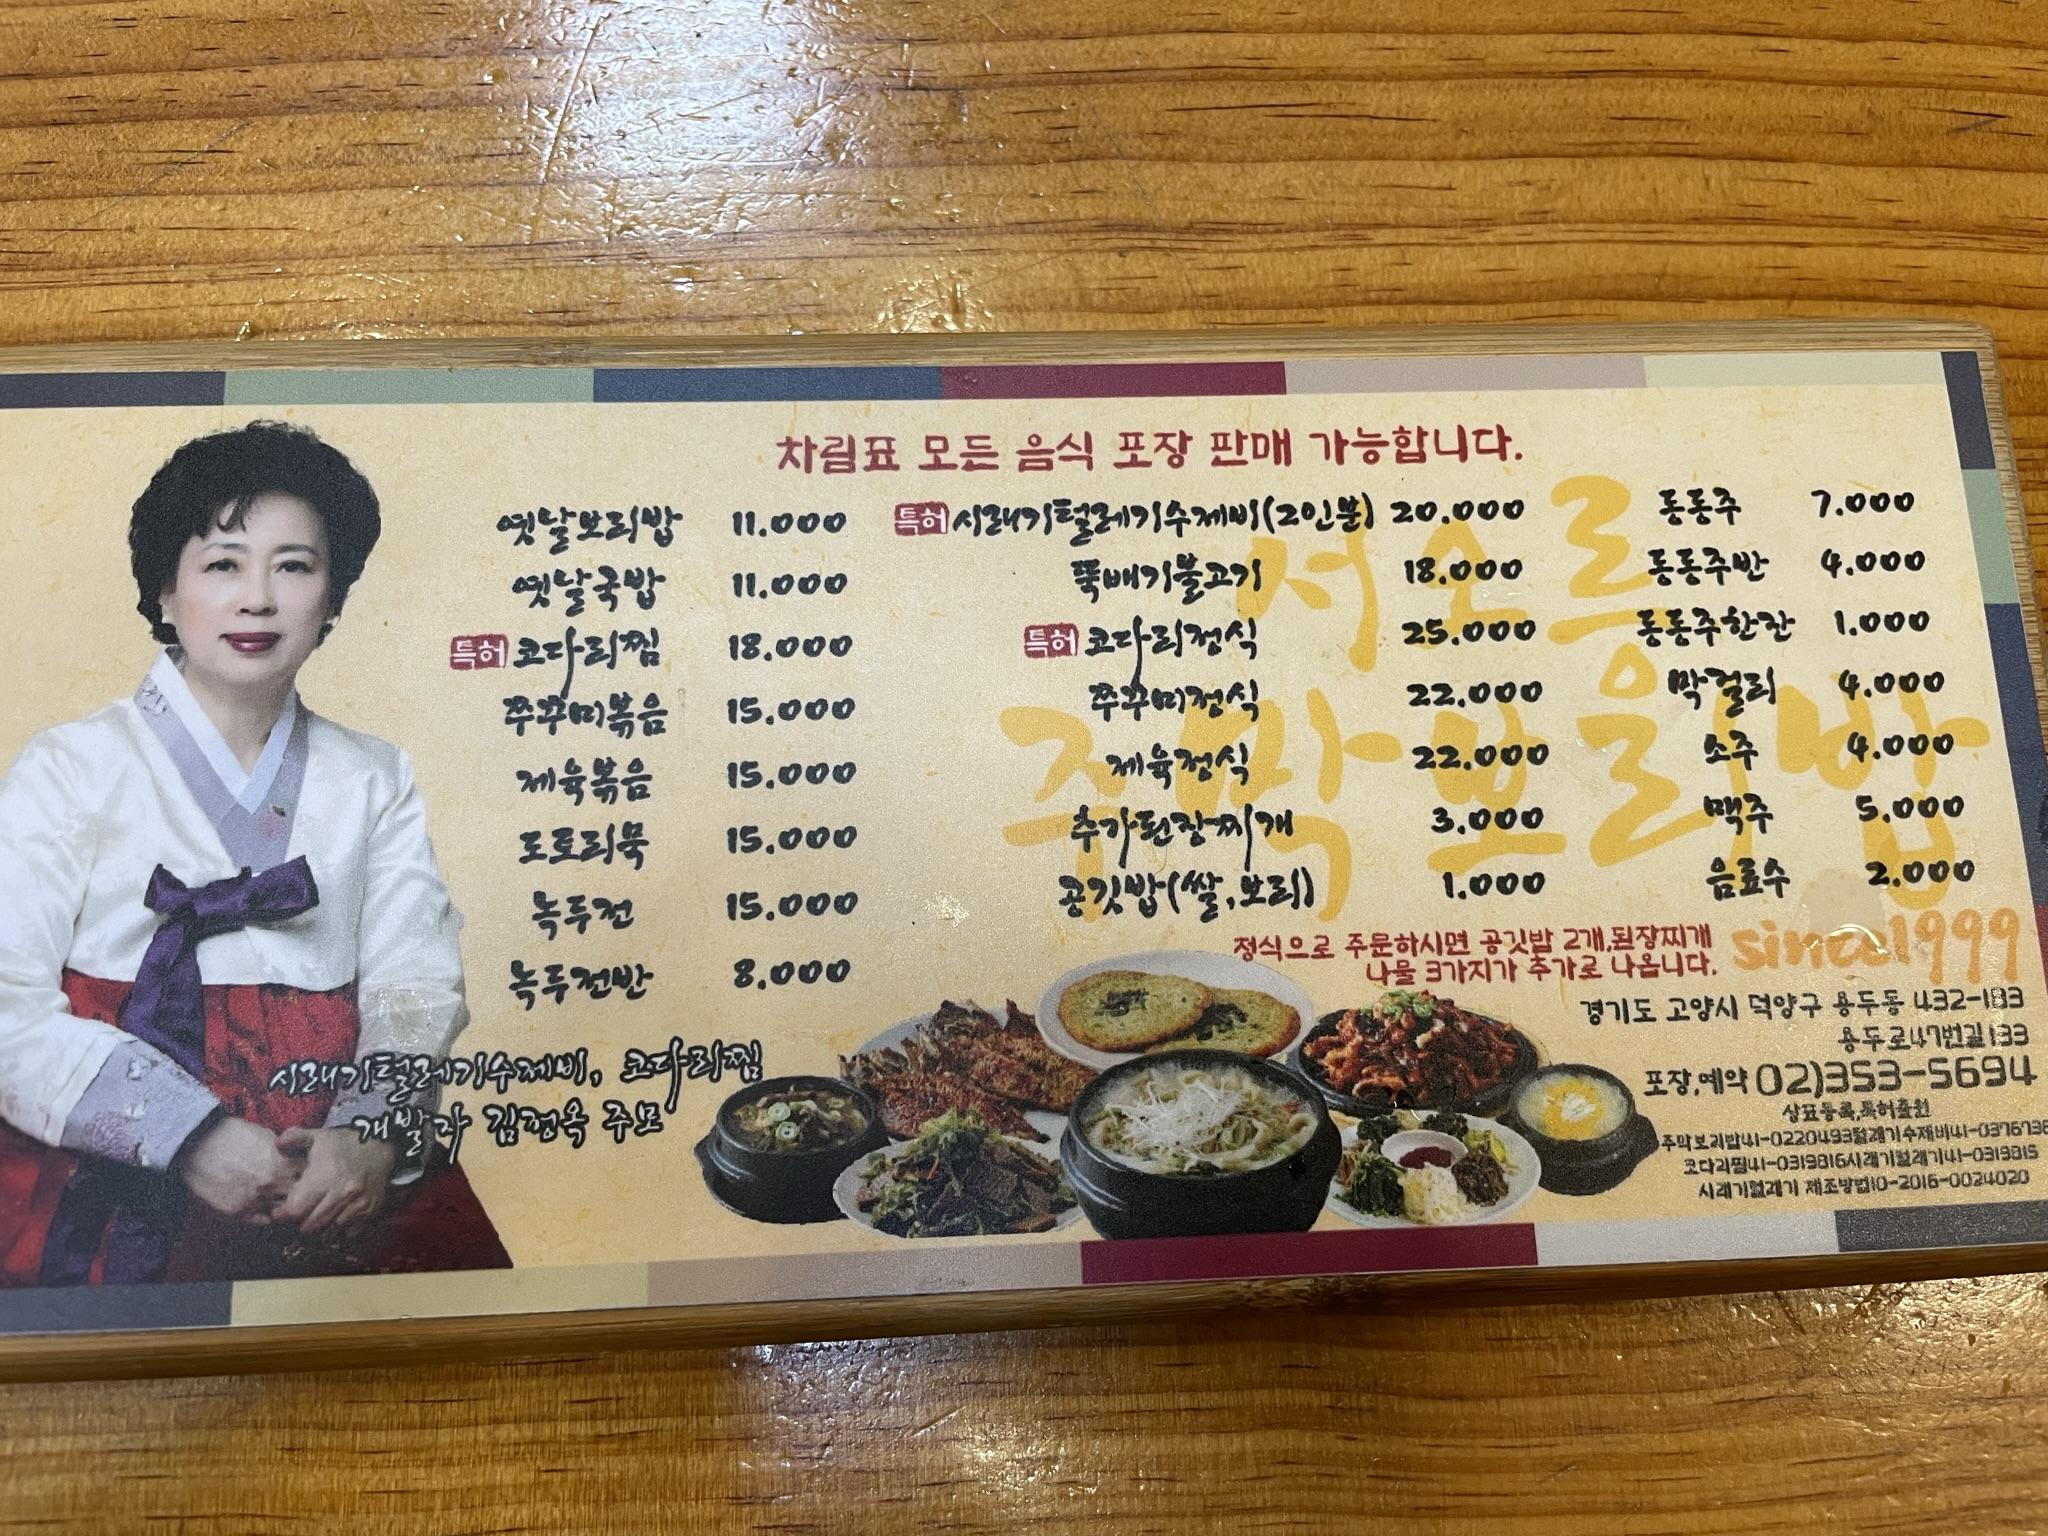 차림표 모든 음식 포장 판매 가능합니다.
옛날보리밥 11.000
옛날국밥 11.000
특허 코다리찜 18.000
쭈꾸미볶음 15.000
제육볶음 15.000
도토리묵 15.000
녹두전 15.000
녹두전반 8.000
특허 시래기털레기수제비(2인분) 20.000
뚝배기불고기 18.000
특허 코다리정식 25.000
쭈꾸미정식 22.000
제육정식 22.000
추가된장찌개 3.000
공깃밥(쌀,보리) 1.000
동동주 7.000
동동주반 4.000
동동주한잔 1.000
막걸리 4.000
소주 4.000
맥주 5.000
음료수 2.000
서오릉
주막보리밥
정식으로 주문하시면 공깃밥 2개,된장찌개
나물 3가지가 추가로 나옵니다.
since1999
시래기털레기수제비, 코다리찜
개발자 김정옥 주모
경기도 고양시 덕양구 용두동 432-183
용두로47번길133
포장,예약 02)353-5694
상표등록,특허출원
주막보리밥41-0220493털레기수제비41-0376736
코다리찜41-0319816시래기털레기41-0319815
시래기털레기 제조방법10-2016-0024020